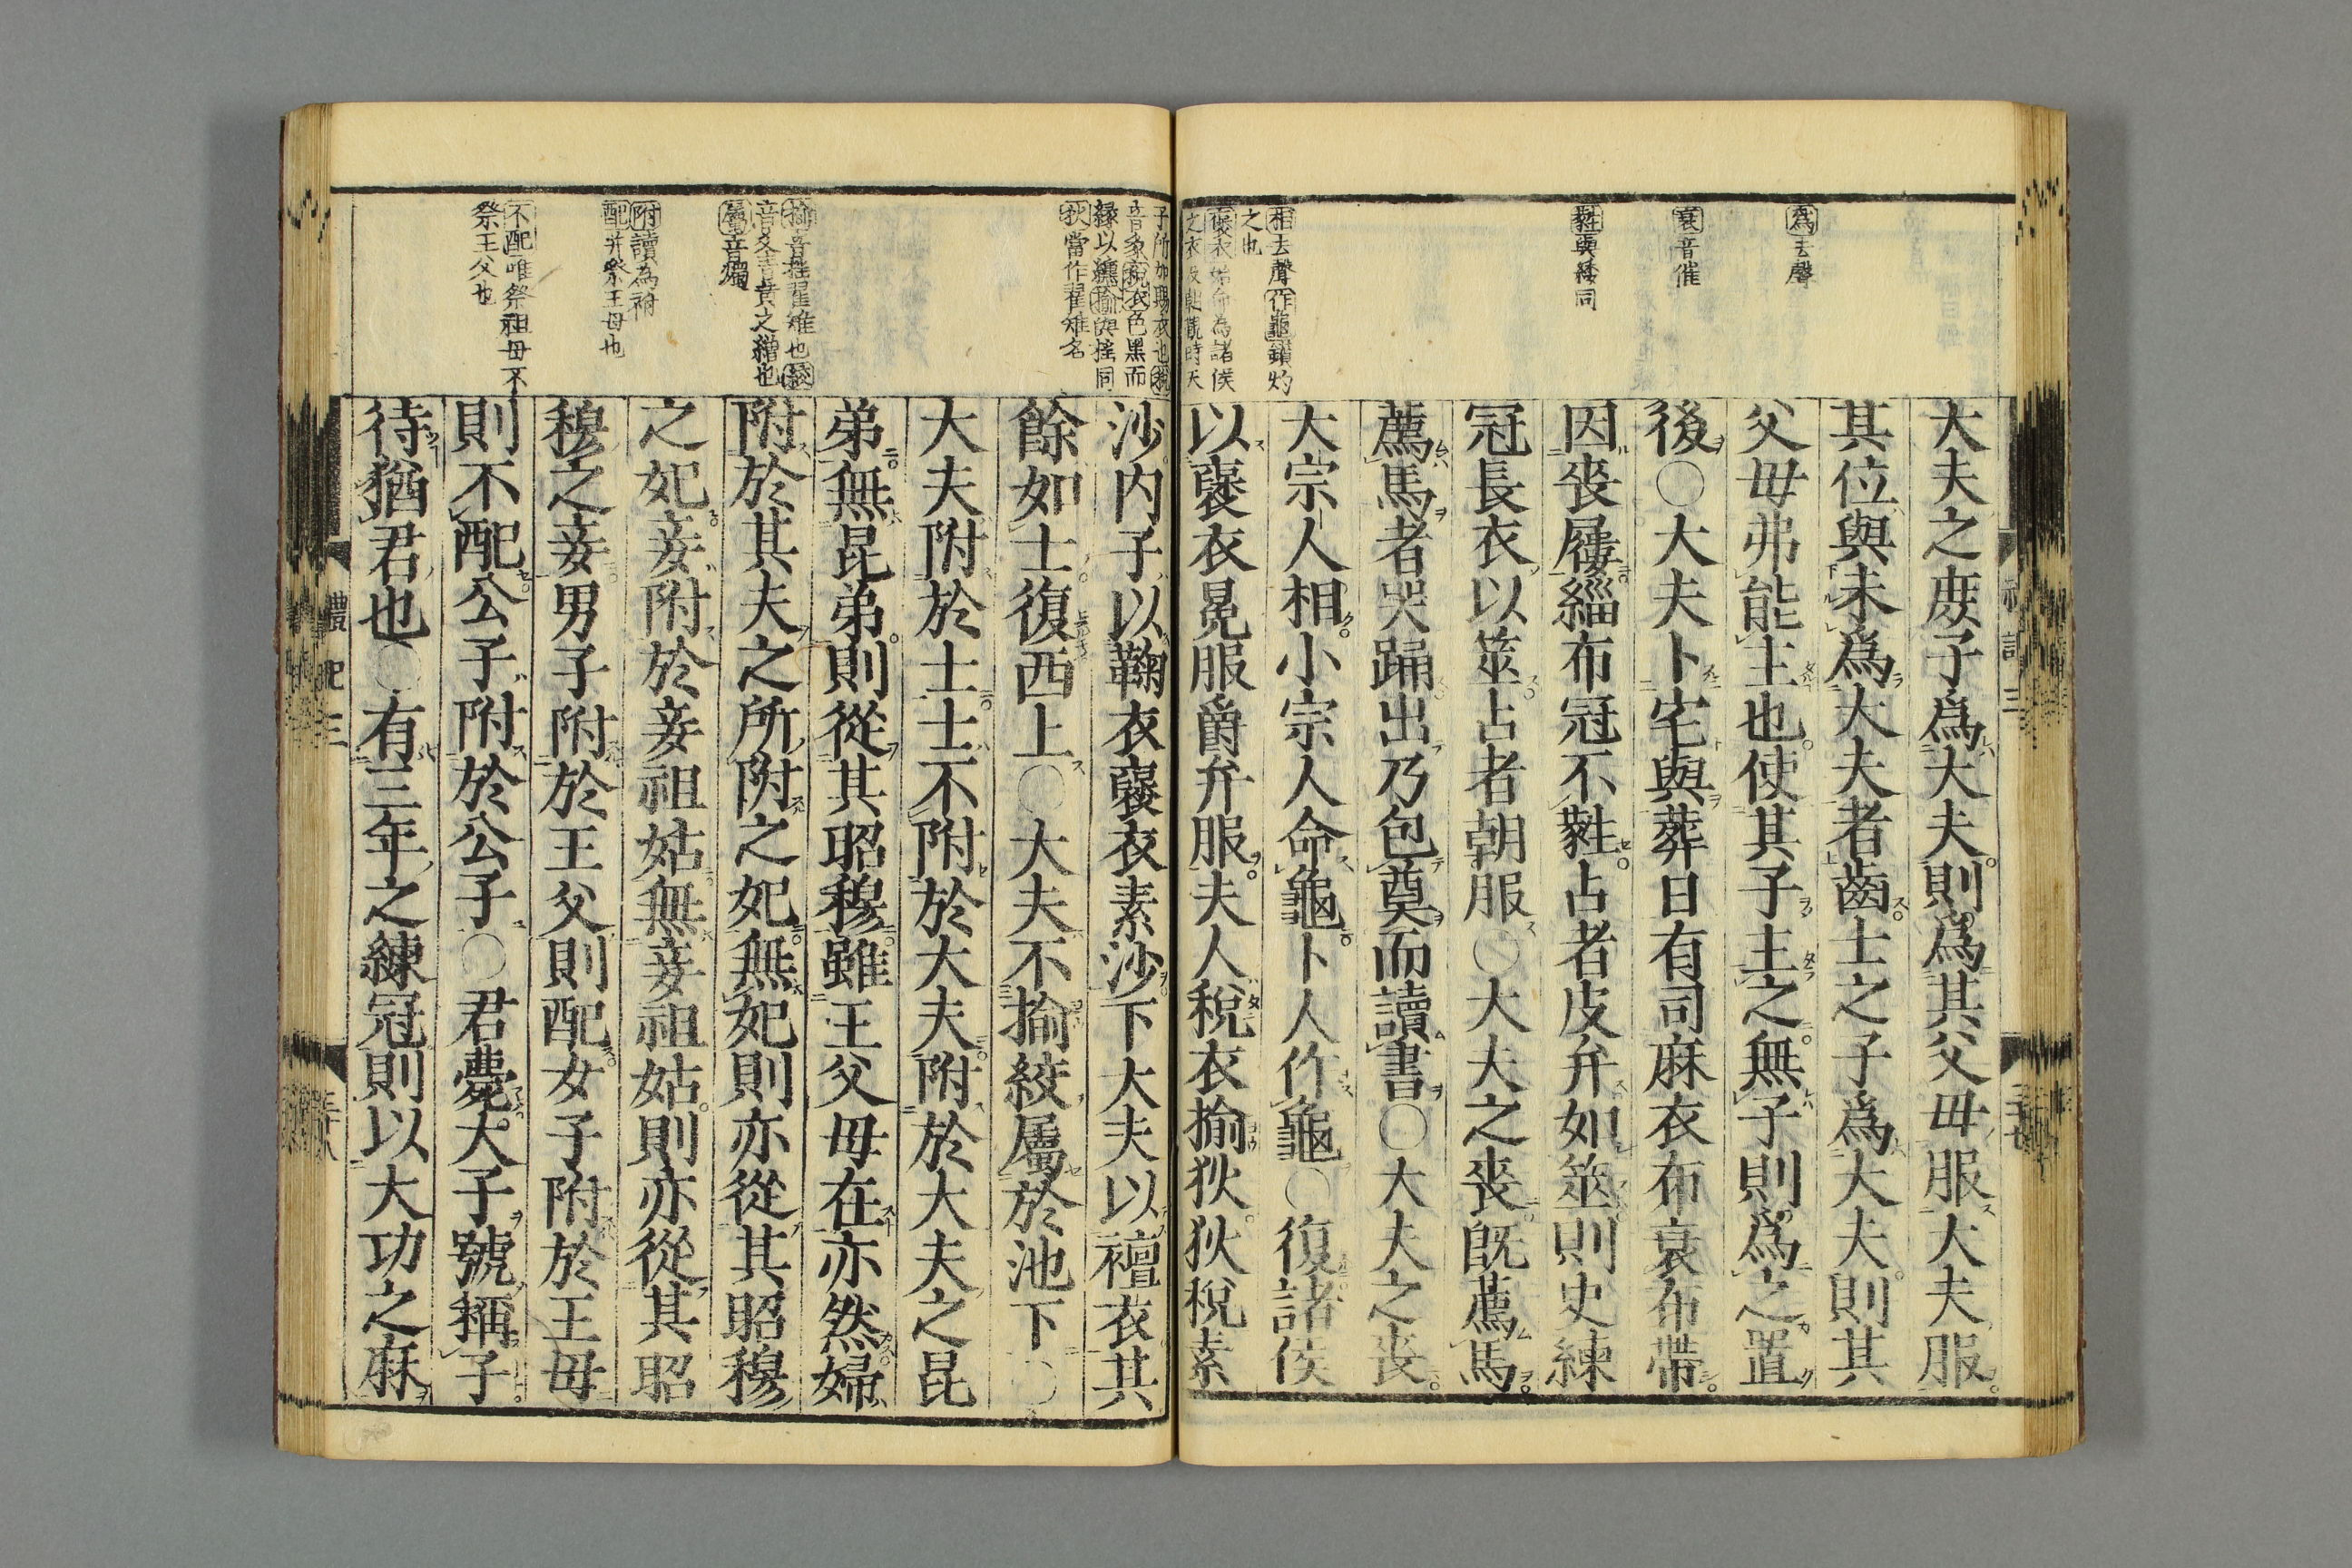 爲去聲
衰音催
蕤與緌同
相去聲作龜鑽灼
之也
褒衣始命為諸侯
之衣及朝覲時天
大夫之庶子爲大夫則爲其父母服大夫服
其位與未爲大夫者齒士之子爲大夫則其
父母弗能主也使其子主之無子則爲之置
後○大夫卜宅與葬日有司麻衣布衰布帶
因喪屨緇布冠不蕤占者皮弁如筮則史練
冠長衣以筮占者朝服○大夫之喪旣薦馬
薦馬者哭踊出乃包奠而讀書○大夫之喪
大宗人相小宗人命龜卜人作龜○復諸侯
以襃衣冕服爵弁服夫人稅衣揄狄狄稅素
子所加賜衣也稅
音彖稅衣色黑而
緣以纁揄與揺同
狄當作翟雉名
揄音揺翟雉也絞
音爻青黄之繒也
屬音燭
附讀為祔
配并祭王母也
不配唯祭祖母不
祭王父也
沙内子以鞠衣襃衣素沙下大夫以襢衣其
餘如士復西上○大夫不揄絞屬於池下○
大夫附於士士不附於大夫附於大夫之昆
弟無昆弟則從其昭穆雖王父母在亦然婦
附於其夫之所附之妃無妃則亦從其昭穆
之妃妾附於妾祖姑無妾祖姑則亦從其昭
穆之妾男子附於王父則配女子附於王母
則不配公子附於公子○君薨大子號稱子
待猶君也○有三年之練冠則以大功之麻
禮記三
三十八